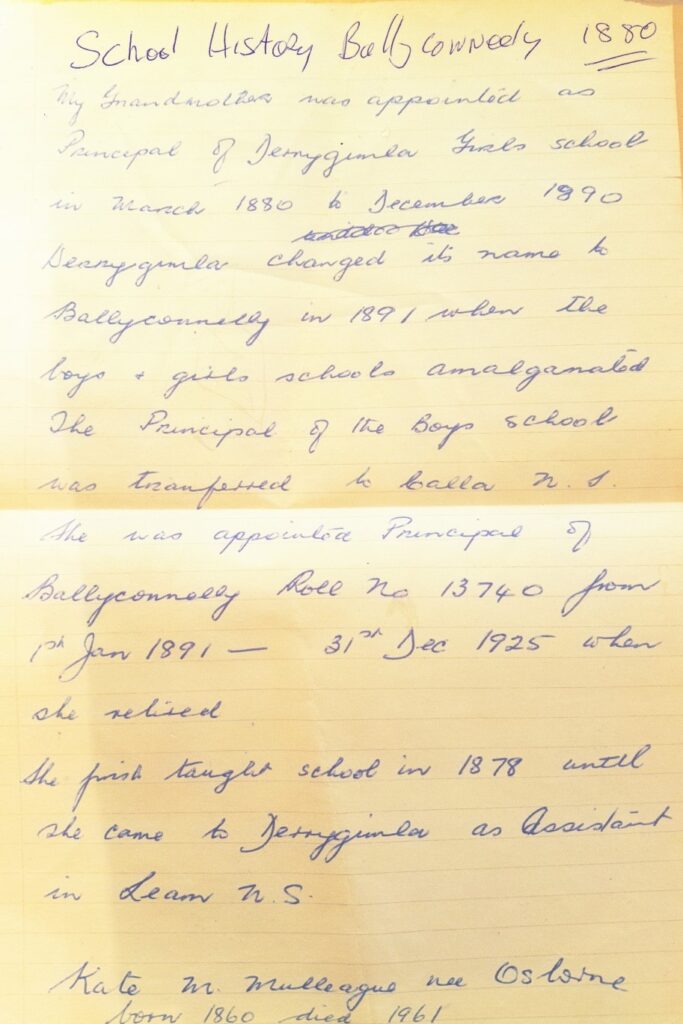 School History Ballyconneely 1880
My Grandmother was appointed as
Principal of Derrygimla Girls school
in March 1880 to December 1890
Derrygimla changed its name to
Ballyconnelly in 1891 when the
boys + girls schools amalganated
The Principal of the Boys school
was tranferred to Calla N. S.
She was appointed Principal of
Ballyconnolly Roll No 13740 from
1st Jan 1891 — 31st Dec 1925 when
she retired
She first taught school in 1878 until
she came to Derrygimla as Assistant
in Leam N.S.
Kate M. Mulleague nee Osborne
born 1860 died 1961